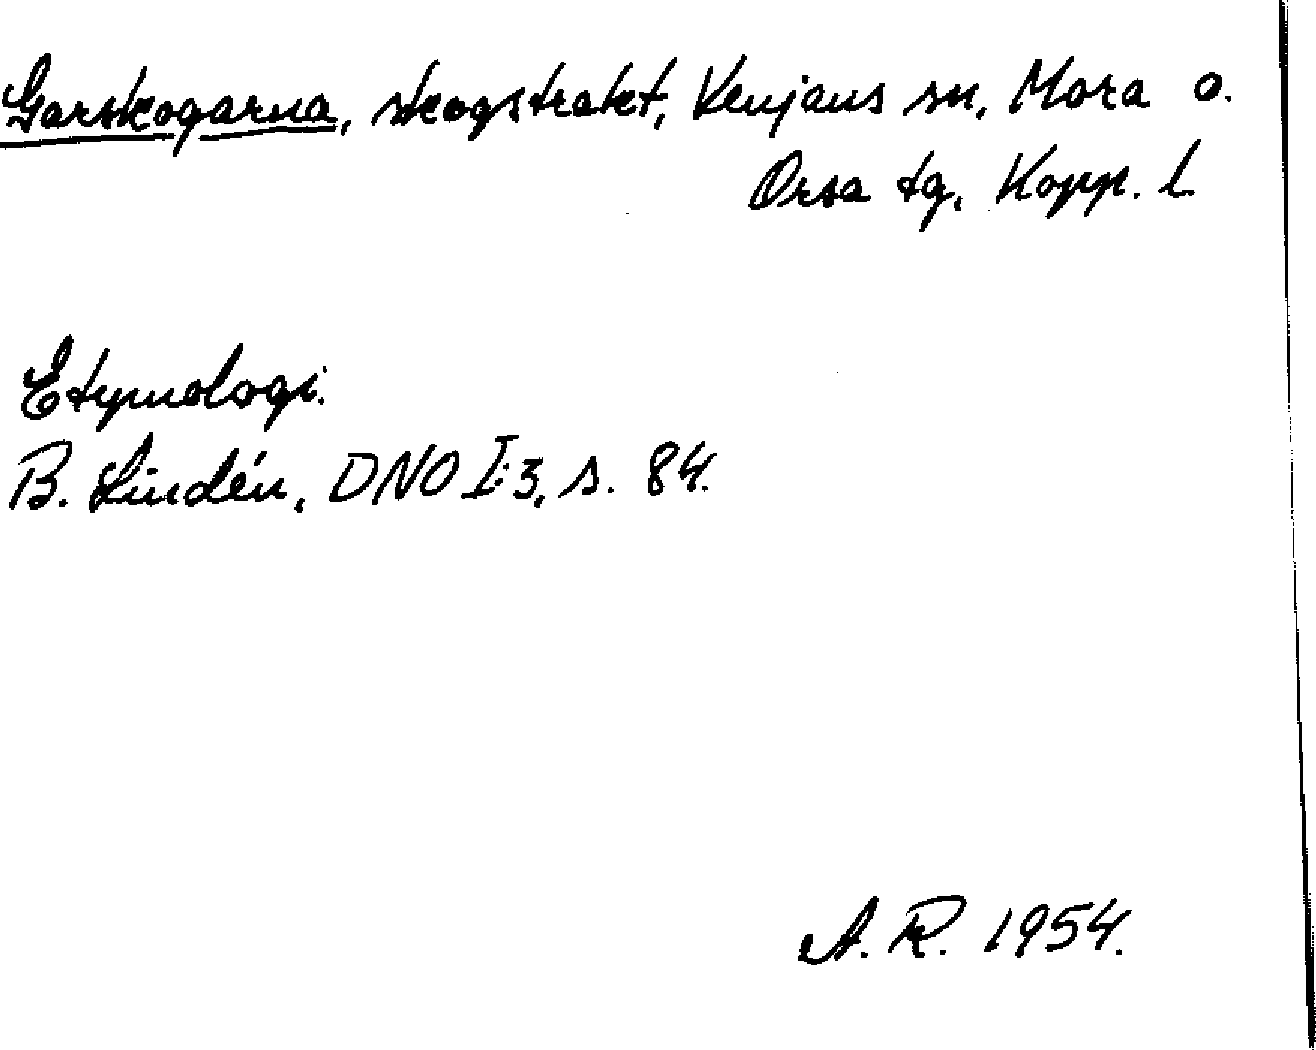 Garskogarna, skogstrakt, Venjans sn, Mora o.
Orsa tg, Kopp. l.
Etymologi.
B. Lindén, DNO I:3, s. 84.
A. R. 1954.